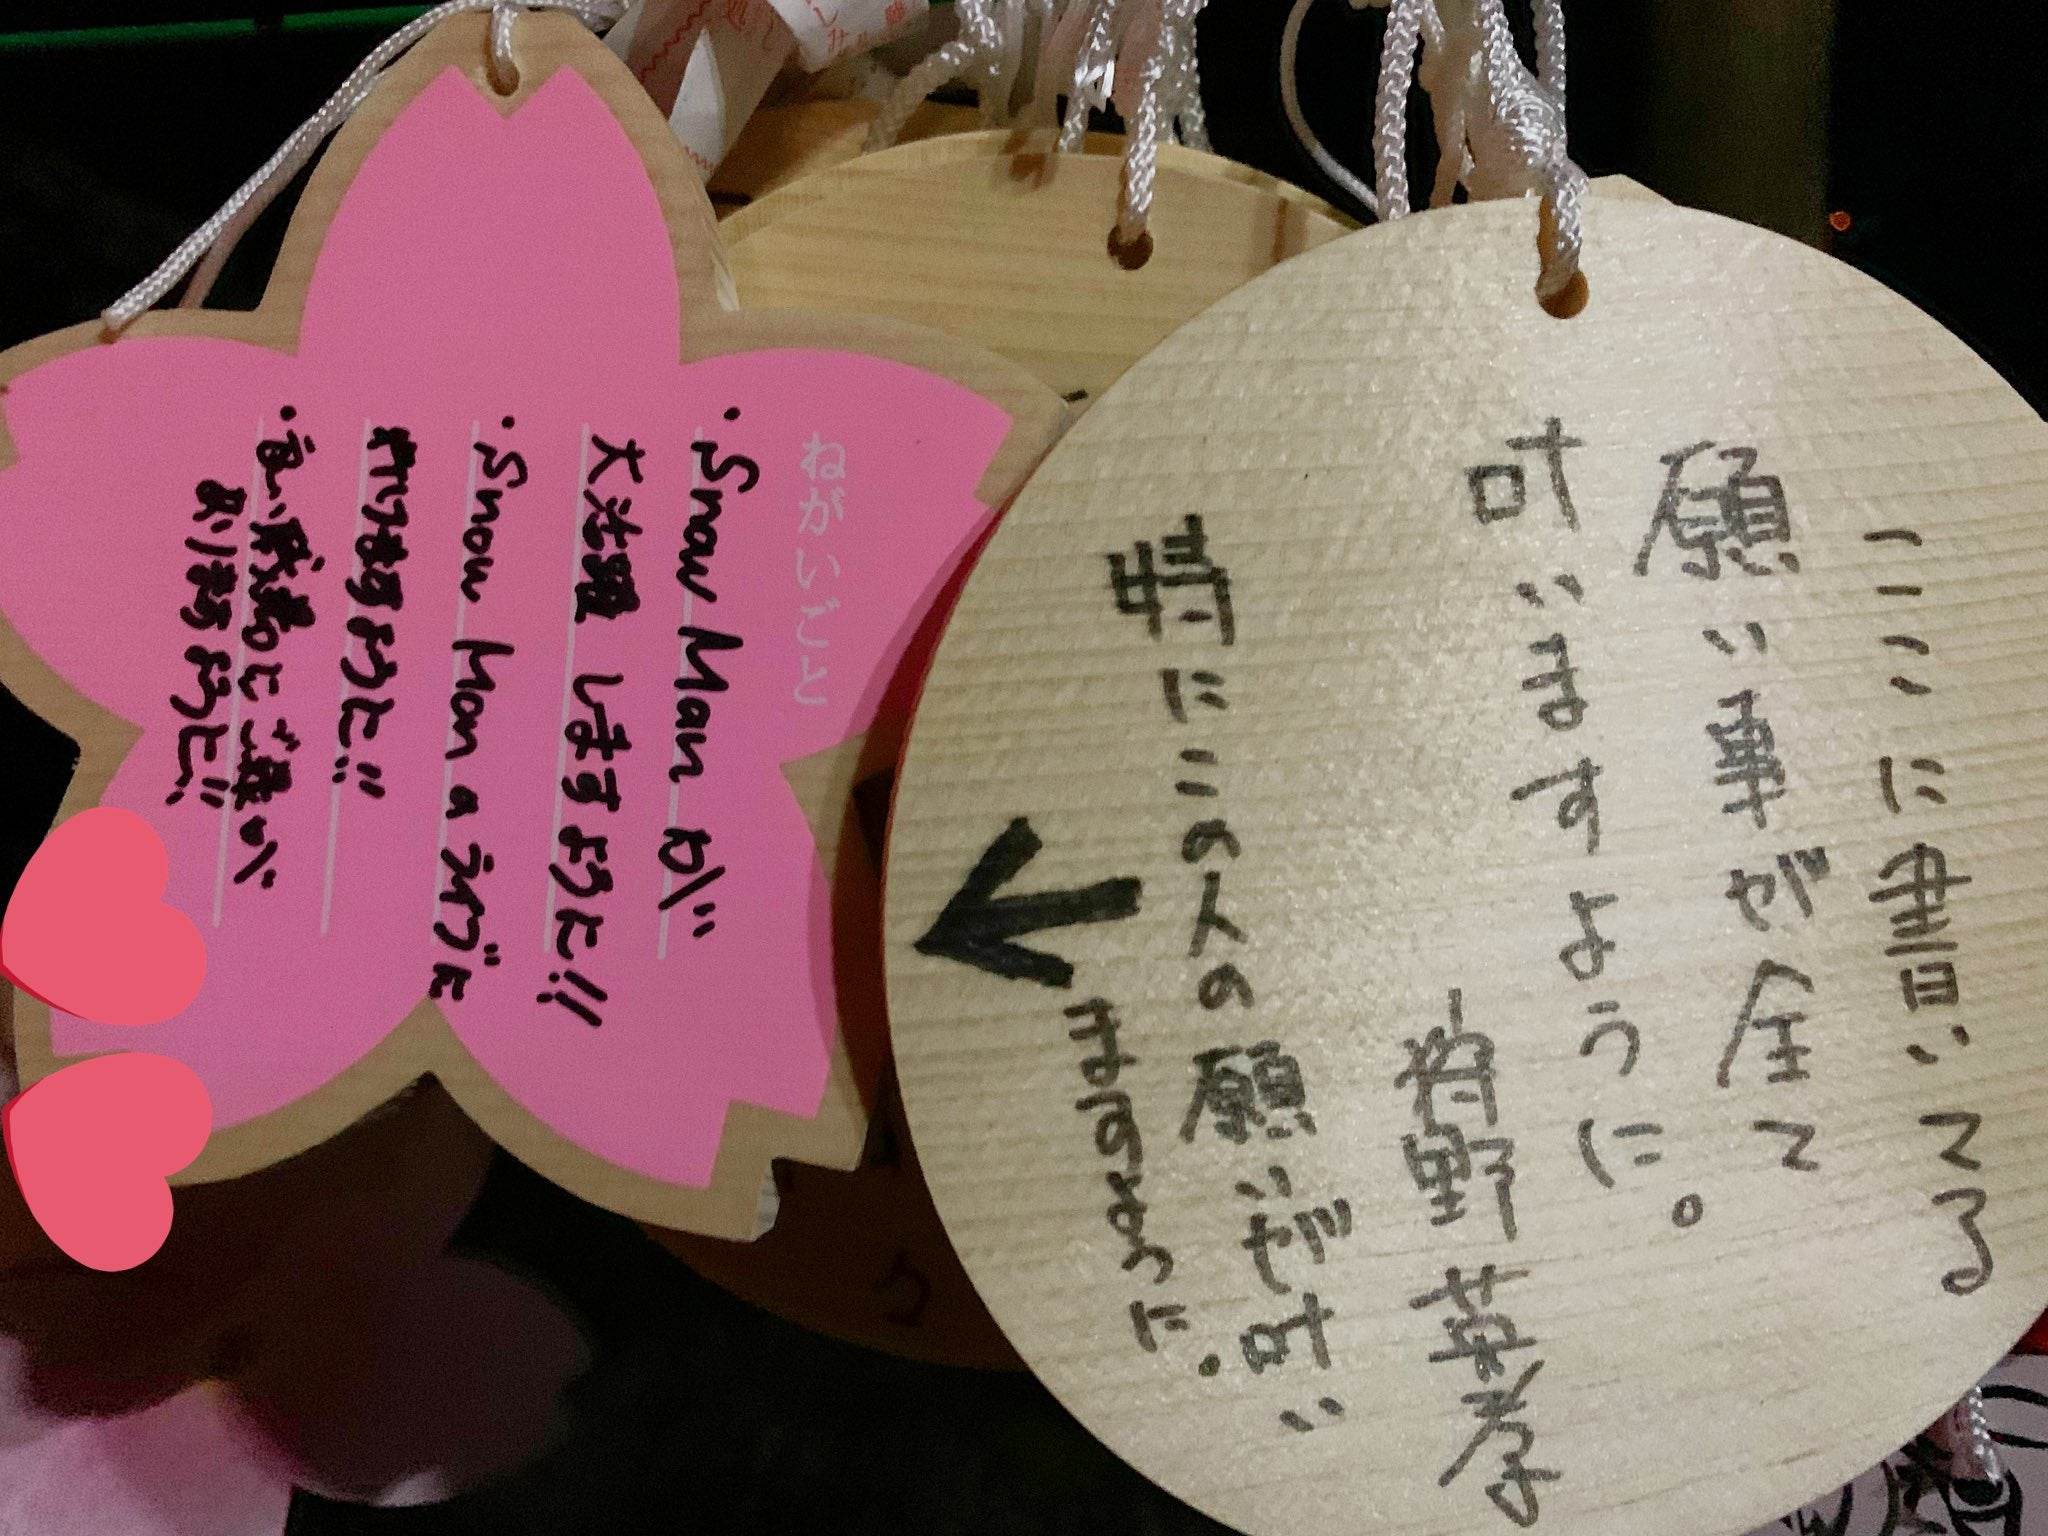 ここに書いてる
願い事が全て
叶いますように。
狩野英孝
特にこの人の願いが叶い
ますように。
ねがいごと
・Snow Manが
大活躍しますように!!
・Snow Manのライブに
行けますように!!
・良い成績とご縁が
ありますように!!